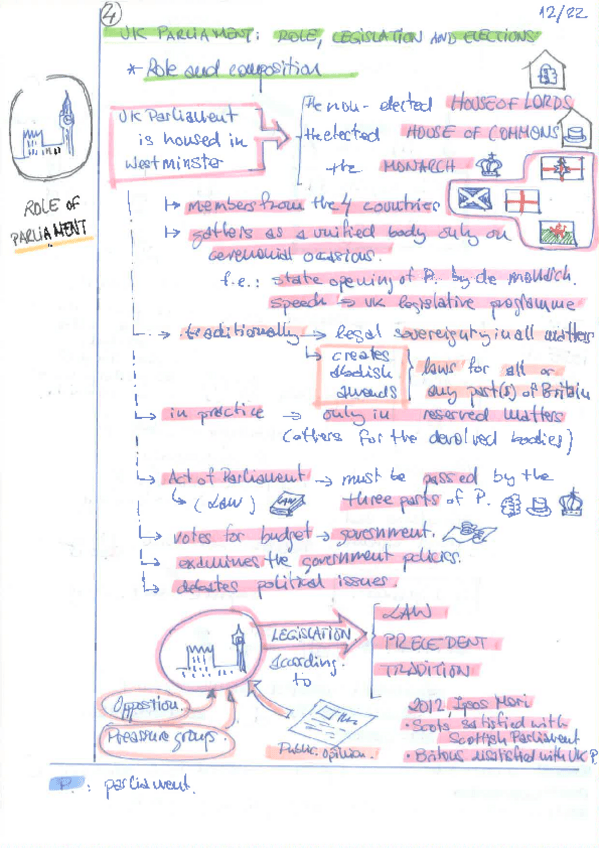 4
12/22
UK PARLIAMENT: ROLE, LEGISLATION AND ELECTIONS
* Role and composition
UK Parliament
is housed in
Westminster
the non-elected HOUSE OF LORDS
the elected HOUSE OF COMMONS
the MONARCH
ROLE OF
PARLIAMENT
↳ members from the 4 countries
↳ gathers as a unified body only on
ceremonial ocasions.
f.e.: state opening of P. by de monarch.
speech → UK legislative programme
traditionally → legal sovereignty in all matters
↳ creates
abolish
amends
laws for all or
any part(s) of Britain
in practice → only in reserved matters
(others for the devolved bodies)
Act of Parliament → must be passed by the
↳ (LAW)
three parts of P.
votes for budget → government.
examines the government policies.
debates political issues.
LEGISLATION
According
to
LAW
PRECEDENT
TRADITION
Opposition.
Pressure group.
Public opinion.
2012, Ipsos Mori
• Scots satisfied with
Scottish Parliament
• Britons dissatisfied with UK P.
P.: parliament.